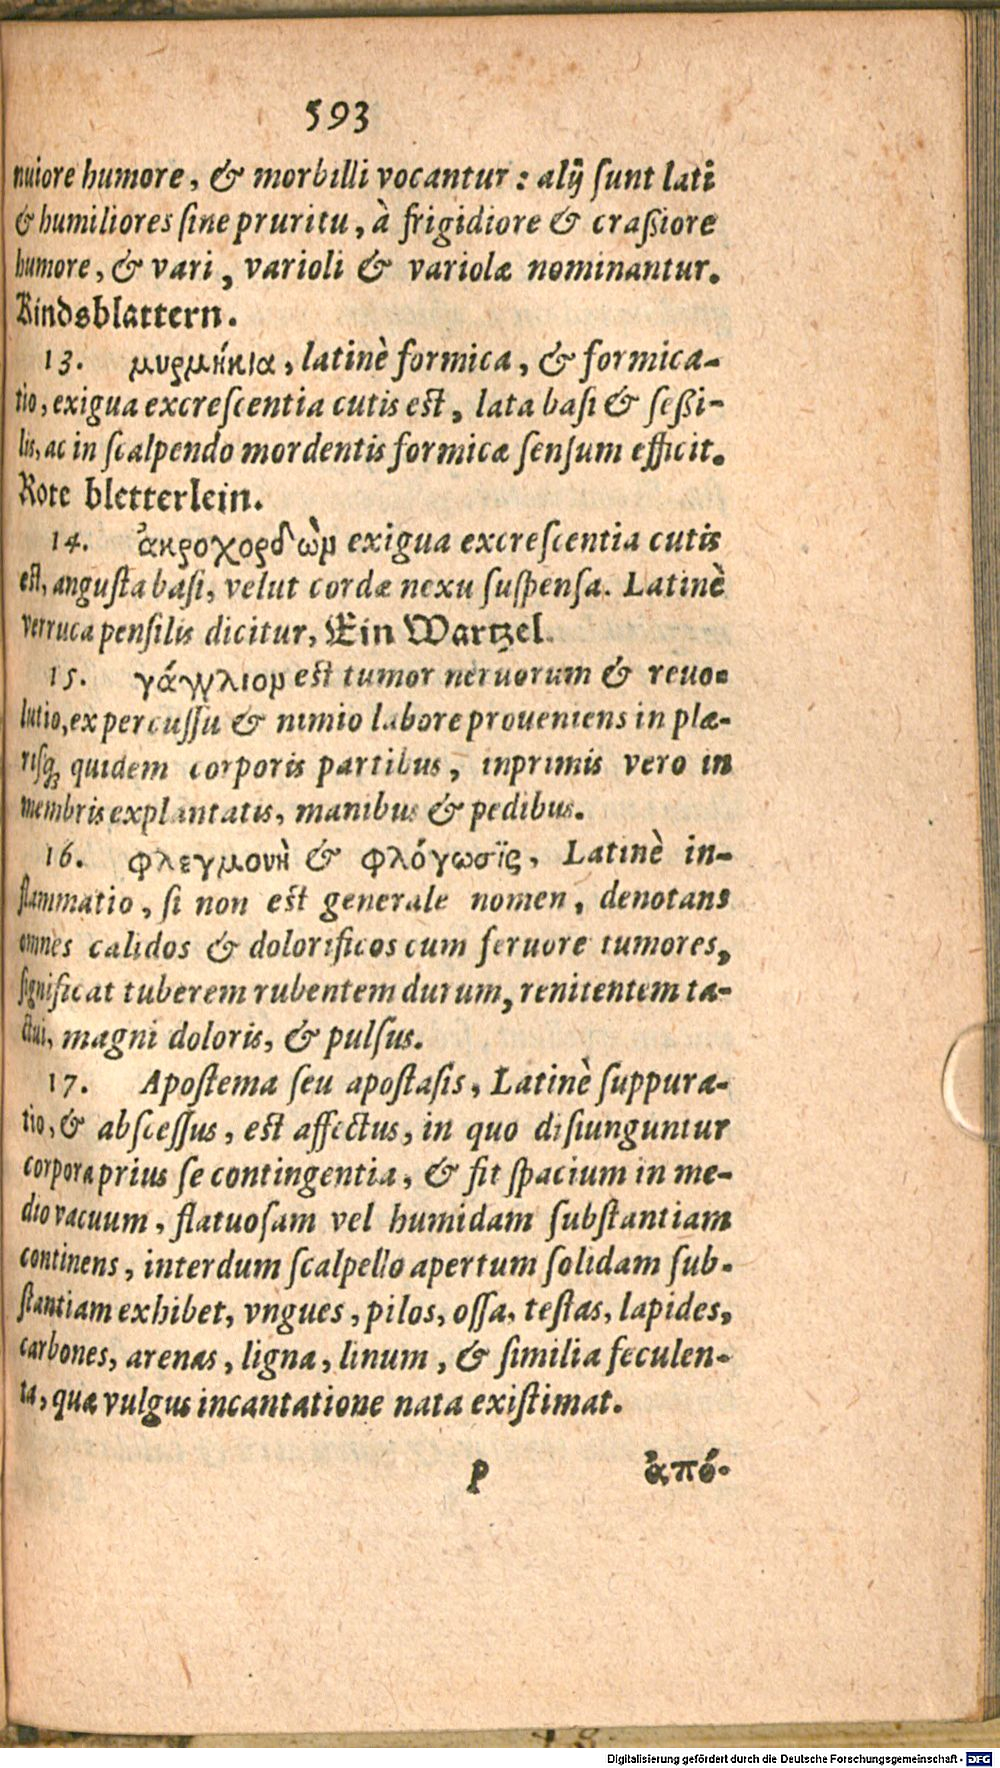 593
nuiore humore, & morbilli vocantur: alij sunt lati
& humiliores sine pruritu, à frigidiore & craßiore
humore, & vari, varioli & variolæ nominantur.
Kindsblattern.
13. μυρμήκια, latinè formica, & formica-
tio, exigua excrescentia cutis est, lata basi & seßi-
lis, ac in scalpendo mordentis formicæ sensum efficit.
Rote bletterlein.
14. ἀκροχορδὼν exigua excrescentia cutis
est, angusta basi, velut cordæ nexu suspensa. Latinè
verruca pensilis dicitur, Ein Wartzel.
15. γάγγλιον est tumor neruorum & reuo-
lutio, ex percussu & nimio labore proueniens in plæ-
risq; quidem corporis partibus, inprimis vero in
membris explantatis, manibus & pedibus.
16. φλεγμονὴ & φλόγωσϊς, Latinè in-
flammatio, si non est generale nomen, denotans
omnes calidos & dolorificos cum feruore tumores,
significat tuberem rubentem durum, renitentem ta-
ctui, magni doloris, & pulsus.
17. Apostema seu apostasis, Latinè suppura-
tio, & abscessus, est affectus, in quo disiunguntur
corpora prius se contingentia, & fit spacium in me-
dio vacuum, flatuosam vel humidam substantiam
continens, interdum scalpello apertum solidam sub-
stantiam exhibet, vngues, pilos, ossa, testas, lapides,
carbones, arenas, ligna, linum, & similia feculen-
ta, quæ vulgus incantatione nata existimat.
P ἀπό-
Digitalisierung gefördert durch die Deutsche Forschungsgemeinschaft - DFG